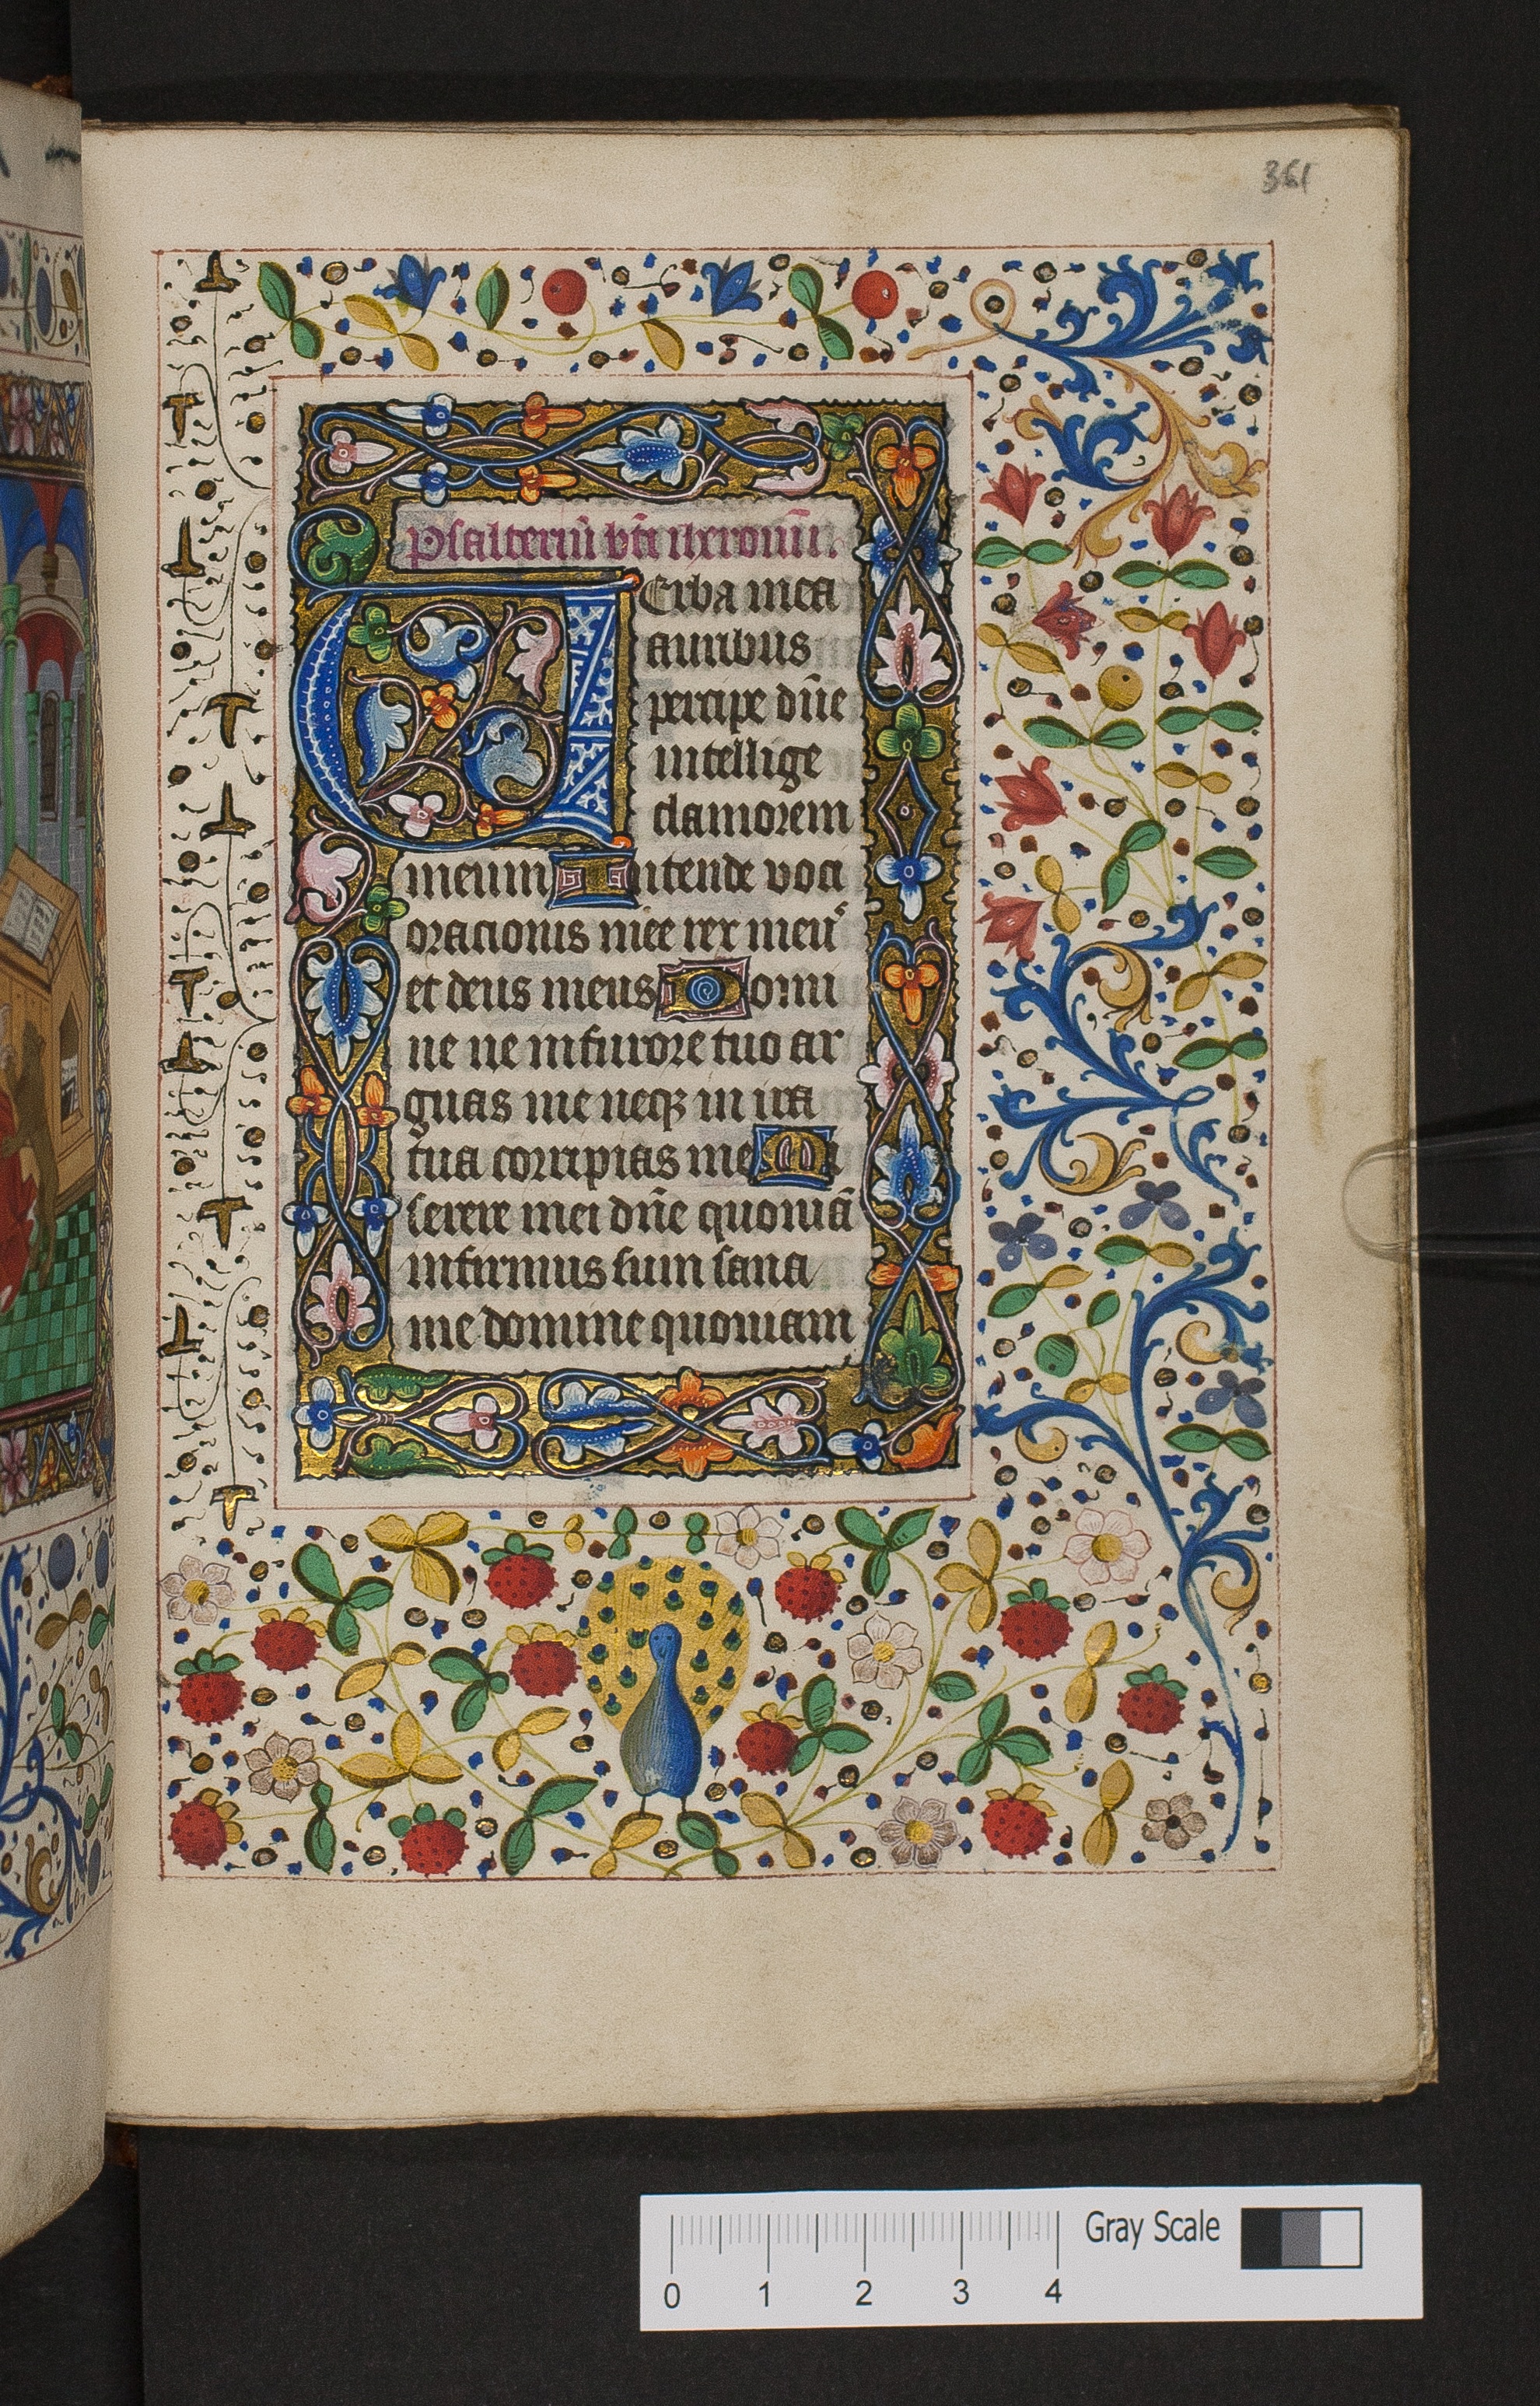 361
Psalteriū bt̄i iheronimi.
VErba mea
auribus
percipe dn̄e
intellige
clamorem
meum Intende voci
oracionis mee rex meus
et deus meus Domi
ne ne in furore tuo ar
guas me neqꝫ in ira
tua corripias me Mi
serere mei dn̄e quoniā
infirmus sum sana
me domine quoniam
Gray Scale
0 1 2 3 4